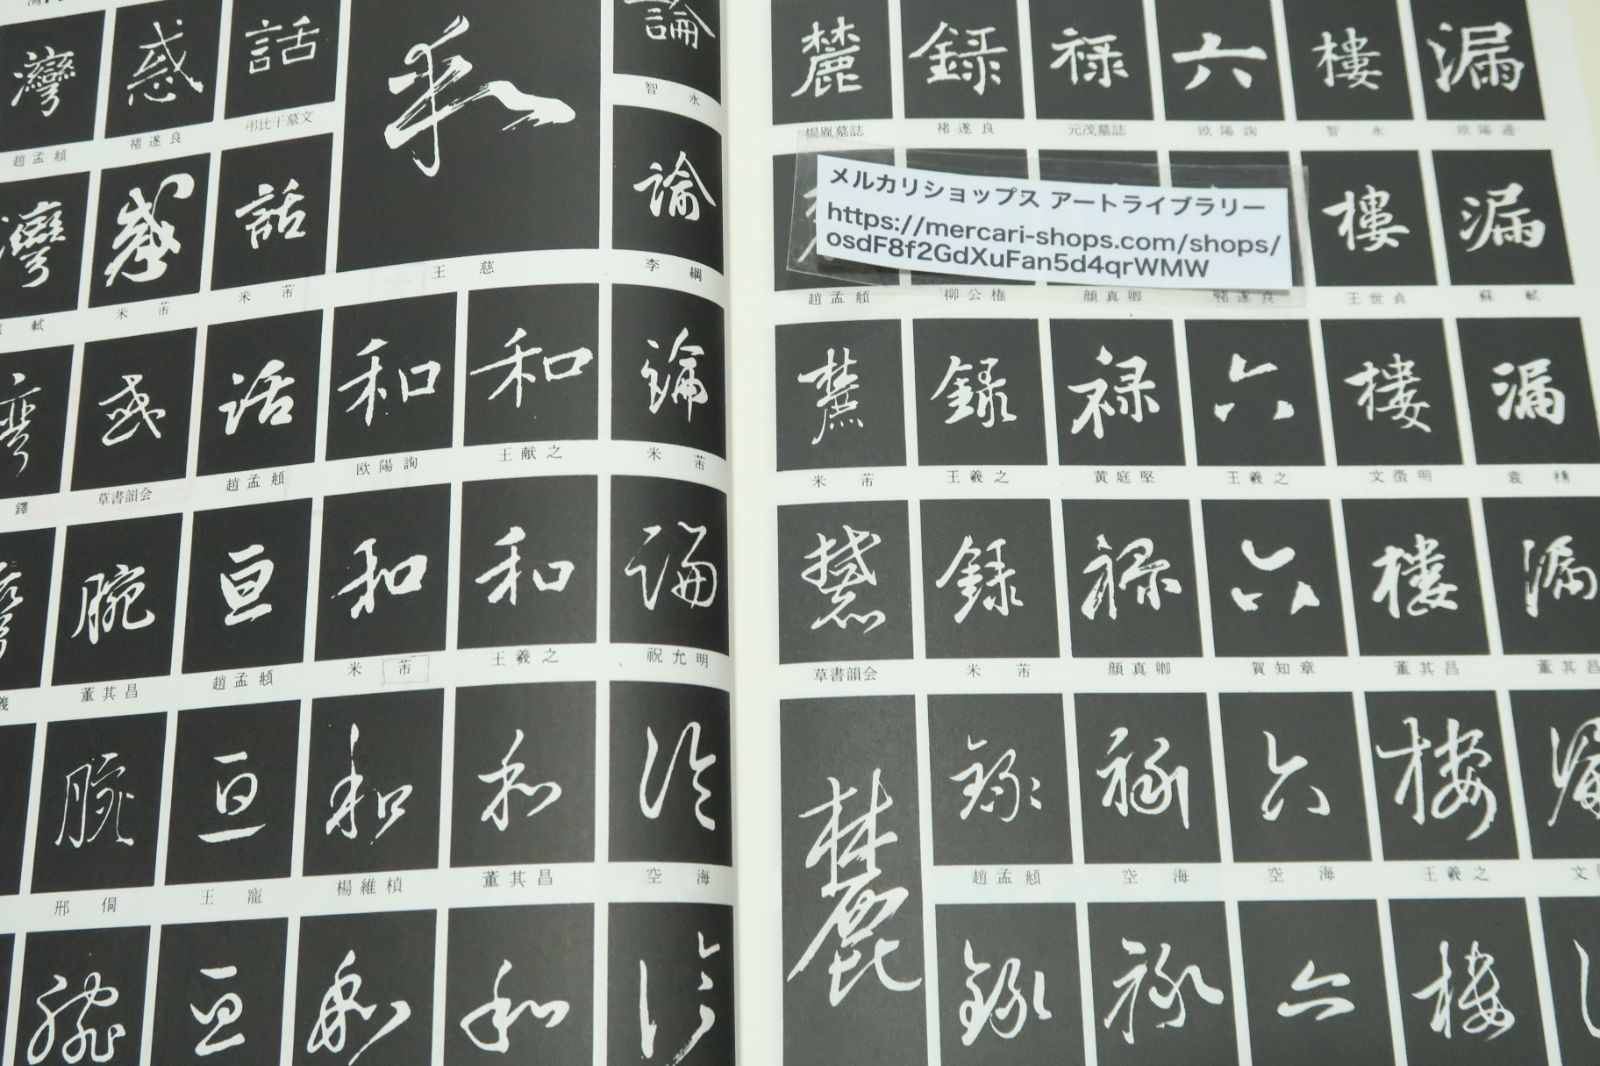 灣 惑 話 和 論
趙孟頫 褚遂良 弔比干墓文 智永
灣 惑 話 論
米芾 米芾 王慈 李綱
惑 話 和 和 論
鐸 草書韻会 趙孟頫 欧陽詢 王献之 米芾
腕 亘 和 和 論
董其昌 趙孟頫 米芾 王羲之 祝允明
腕 亘 和 和 論
邢侗 王寵 楊維楨 董其昌 空海
腕 亘 和 和 論
麓 録 禄 六 楼 漏
楊胤墓誌 褚遂良 元茂墓誌 欧陽詢 智永 欧陽通
メルカリショップス アートライブラリー
https://mercari-shops.com/shops/
osdF8f2GdXuFan5d4qrWMW
樓 漏
趙孟頫 柳公権 顔真卿 褚遂良 王世貞 蘇軾
麓 録 禄 六 樓 漏
米芾 王羲之 黄庭堅 王羲之 文徴明 袁桷
麓 録 禄 六 樓 漏
草書韻会 米芾 顔真卿 賀知章 董其昌 董其昌
麓 録 禄 六 樓
趙孟頫 空海 空海 王羲之
録 禄 六 樓